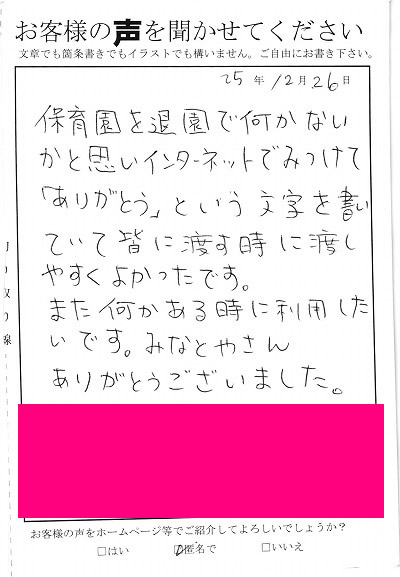 お客様の声を聞かせてください
文章でも箇条書きでもイラストでも構いません。ご自由にお書き下さい。
25年12月26日
保育園を退園で何かない
かと思いインターネットでみつけて
「ありがとう」という文字を書い
ていて皆に渡す時に渡し
やすくよかったです。
また何かある時に利用した
いです。みなとやさん
ありがとうございました。
切り取り線
お客様の声をホームページ等でご紹介してよろしいでしょうか?
□はい □匿名で □いいえ